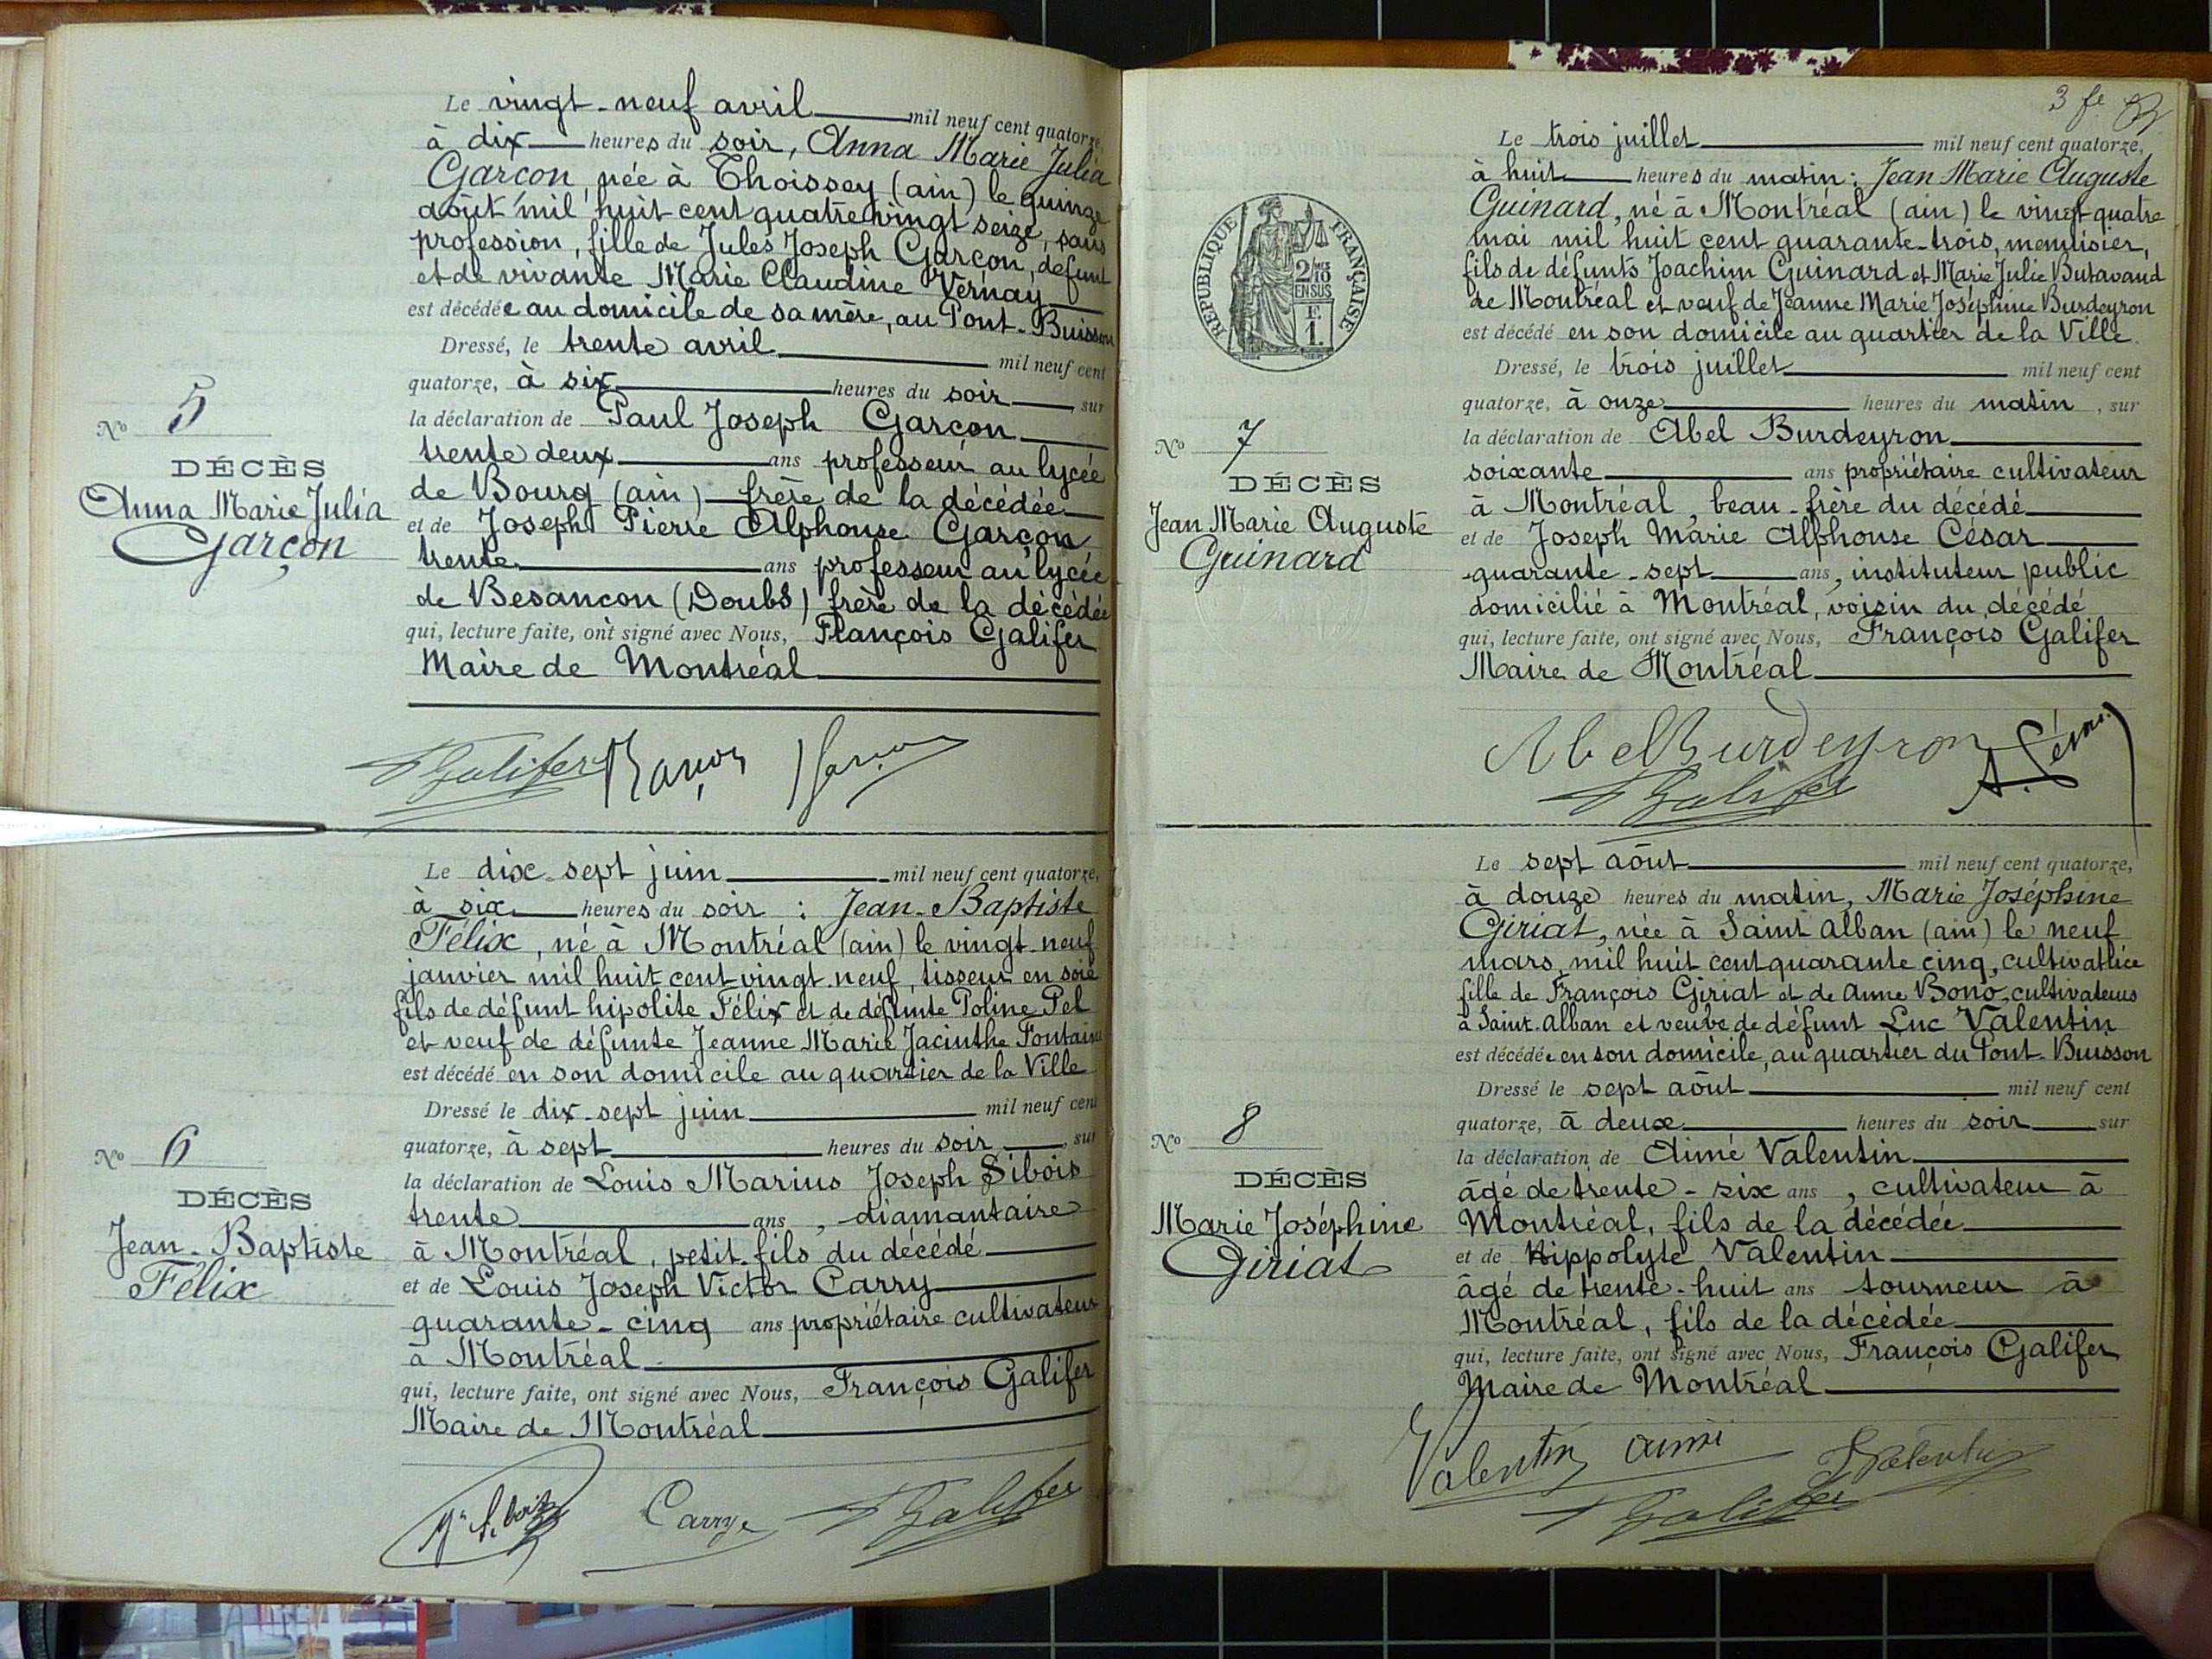 Le vingt-neuf avril mil neuf cent quatorze,
à dix heures du soir, Anna Marie Julia
Garçon, née à Thoissey (ain) le quinze
août mil huit cent quatre vingt seize, sans
profession, fille de Jules Joseph Garçon, défunt
et de vivante Marie Claudine Vernay
est décédée au domicile de sa mère, au Pont-Buisson
Dressé, le trente avril mil neuf cent
quatorze, à six heures du soir, sur
la déclaration de Paul Joseph Garçon
trente deux ans professeur au lycée
de Bourg (ain) frère de la décédée
et de Joseph Pierre Alphonse Garçon,
trente ans professeur au lycée
de Besançon (Doubs) frère de la décédée
qui, lecture faite, ont signé avec Nous, François Galifer
Maire de Montréal
No 5
DÉCÈS
Anna Marie Julia
Garçon
Galifer Garçon Garçon
Le dix-sept juin mil neuf cent quatorze,
à six heures du soir : Jean-Baptiste
Félix, né à Montréal (ain) le vingt-neuf
janvier mil huit cent vingt neuf, tisseur en soie
fils de défunt hipolite Félix et de défunte Poline Pel
et veuf de défunte Jeanne Marie Jacinthe Fontaine
est décédé en son domicile au quartier de la Ville
Dressé le dix-sept juin mil neuf cent
quatorze, à sept heures du soir, sur
la déclaration de Louis Marius Joseph Sibois
trente ans, diamantaire
à Montréal, petit-fils du décédé
et de Louis Joseph Victor Carry
quarante-cinq ans propriétaire cultivateur
à Montréal
qui, lecture faite, ont signé avec Nous, François Galifer
Maire de Montréal
No 6
DÉCÈS
Jean-Baptiste
Félix
Carry Galifer
3 fe
Le trois juillet mil neuf cent quatorze,
à huit heures du matin : Jean Marie Auguste
Guinard, né à Montréal (ain) le vingt-quatre
mai mil huit cent quarante-trois, menuisier,
fils de défunts Joachim Guinard et Marie Julie Butavand
de Montréal et veuf de Jeanne Marie Joséphine Burdeyron
est décédé en son domicile au quartier de la Ville
Dressé, le trois juillet mil neuf cent
quatorze, à onze heures du matin, sur
la déclaration de Abel Burdeyron
soixante ans propriétaire cultivateur
à Montréal, beau-frère du décédé
et de Joseph Marie Alphonse César
quarante-sept ans, instituteur public
domicilié à Montréal, voisin du décédé
qui, lecture faite, ont signé avec Nous, François Galifer
Maire de Montréal
RÉPUBLIQUE FRANÇAISE
2/10
EN SUS
F.
1.
No 7
DÉCÈS
Jean Marie Auguste
Guinard
Abel Burdeyron A. César
Galifer
Le sept août mil neuf cent quatorze,
à douze heures du matin, Marie Joséphine
Giriat, née à Saint Alban (ain) le neuf
mars mil huit cent quarante cinq, cultivatrice
fille de François Giriat et de Anne Bono, cultivateurs
à Saint-Alban et veuve de défunt Luc Valentin
est décédée en son domicile, au quartier du Pont-Buisson
Dressé le sept août mil neuf cent
quatorze, à deux heures du soir sur
la déclaration de Aimé Valentin
âgé de trente-six ans, cultivateur à
Montréal, fils de la décédée
et de Hippolyte Valentin
âgé de trente-huit ans tourneur à
Montréal, fils de la décédée
qui, lecture faite, ont signé avec Nous, François Galifer
Maire de Montréal
No 8
DÉCÈS
Marie Joséphine
Giriat
Valentin aimé Valentin
Galifer